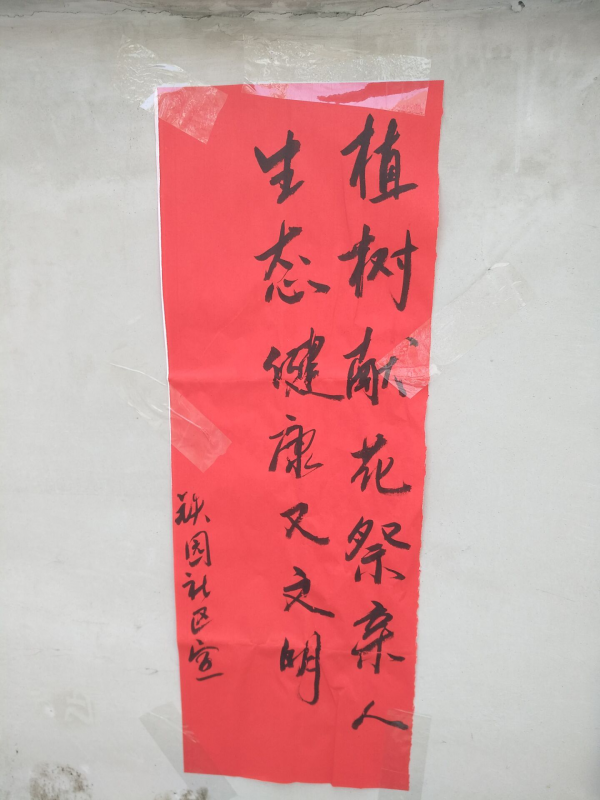 植树献花祭亲人
生态健康又文明
铁园社区宣